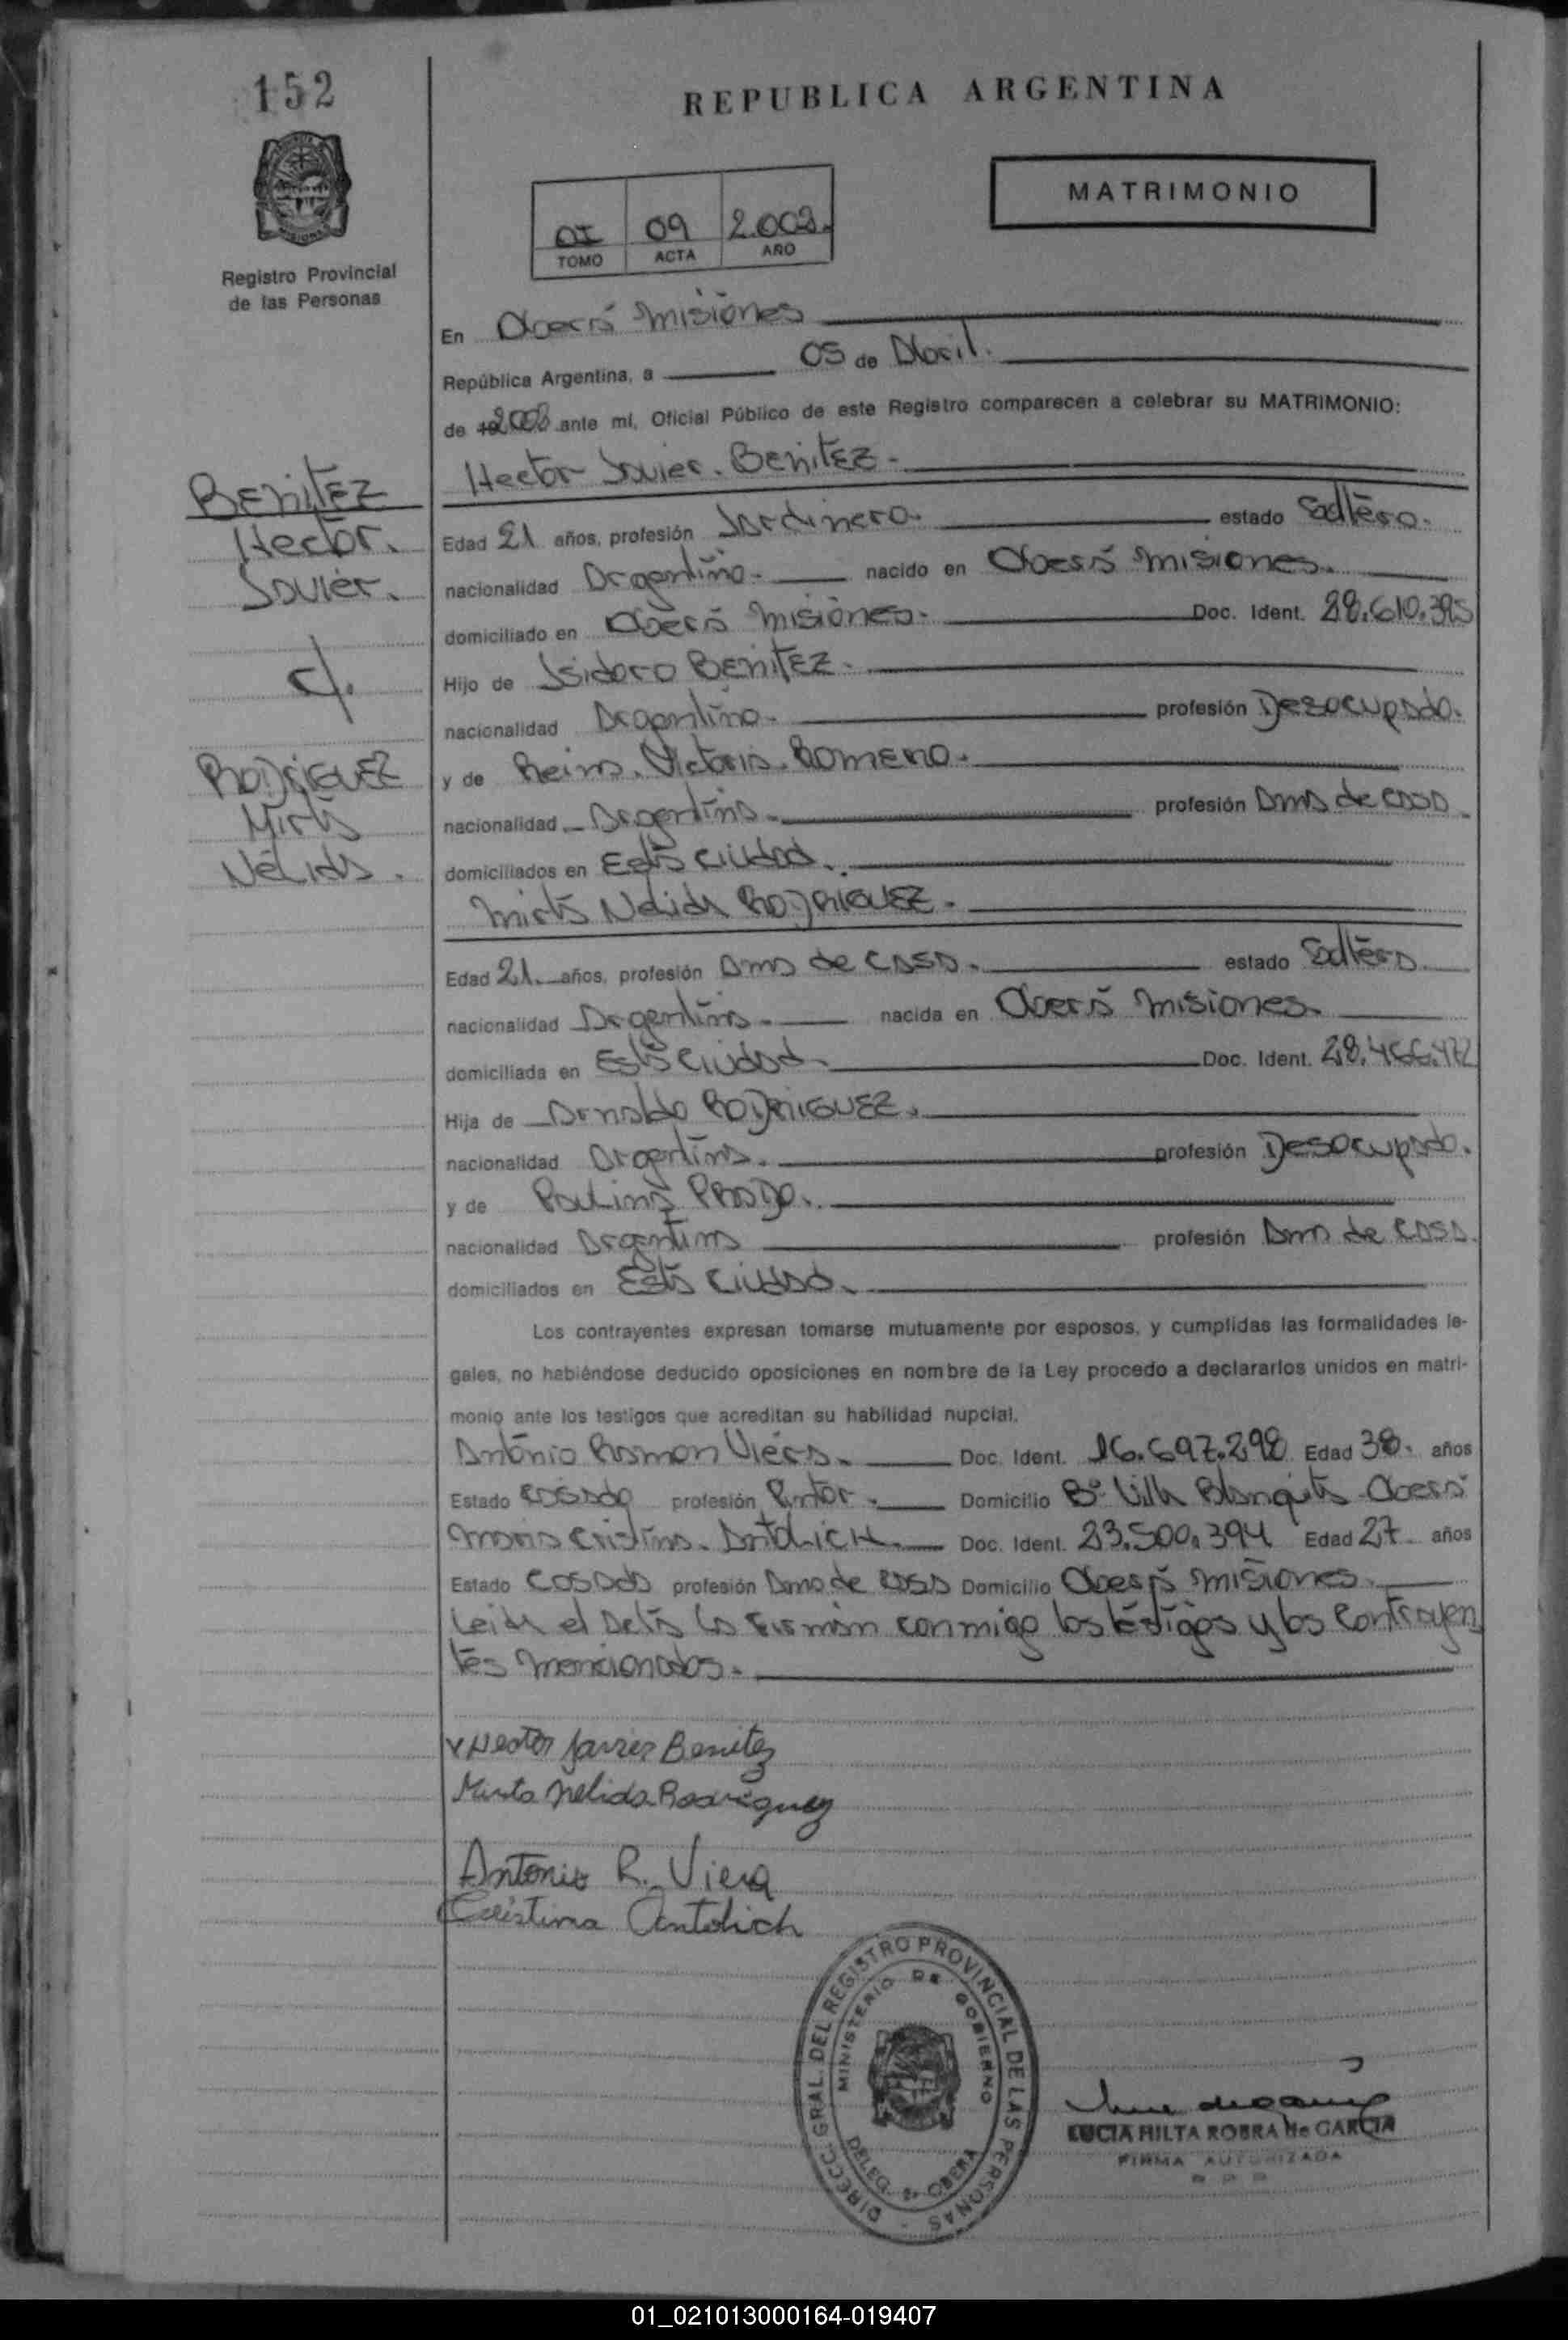 152
REPUBLICA ARGENTINA
MATRIMONIO
Registro Provincial
de las Personas
01 09 2.002.
TOMO ACTA AÑO
En Oberá Misiones
República Argentina, a 05 de Abril.
de 2002 ante mí, Oficial Público de este Registro comparecen a celebrar su MATRIMONIO:
Hector Javier. BENITEZ.
BENITEZ
Hector.
Javier.
c/.
RODRIGUEZ
Mirta
Nélida.
Edad 21 años, profesión Jardinero. estado Soltero.
nacionalidad Argentino. nacido en Oberá Misiones.
domiciliado en Oberá Misiones. Doc. Ident. 28.610.395
Hijo de Isidoro BENITEZ.
nacionalidad Argentino. profesión Desocupado.
y de Reina. Victoria. ROMERO.
nacionalidad Argentina. profesión Ama de casa
domiciliados en Esta Ciudad.
Mirta Nelida RODRIGUEZ.
Edad 21. años, profesión Ama de casa. estado Soltera
nacionalidad Argentina. nacida en Oberá Misiones.
domiciliada en Esta Ciudad. Doc. Ident. 28.466.472
Hija de Arnaldo RODRIGUEZ.
nacionalidad Argentina. profesión Desocupado.
y de Paulina PRADO.
nacionalidad Argentina profesión Ama de casa.
domiciliados en Esta Ciudad.
Los contrayentes expresan tomarse mutuamente por esposos, y cumplidas las formalidades le-
gales, no habiéndose deducido oposiciones en nombre de la Ley procedo a declararlos unidos en matri-
monio ante los testigos que acreditan su habilidad nupcial.
Antonio Ramon Viera. Doc. Ident. 16.697.298 Edad 38. años
Estado casado profesión Pintor. Domicilio Bº Villa Blanquita Oberá
Maria Cristina. ANTOLICH. Doc. Ident. 23.500.394 Edad 27 años
Estado Casada profesión Ama de casa Domicilio Oberá Misiones.
Leida el Acta la firman conmigo los testigos y los Contrayen
tes mencionados.
x Hector Javier Benitez
Mirta Nelida Rodriguez
Antonio R. Viera
Cristina Antolich
DIRECC. GRAL. DEL REGISTRO PROVINCIAL DE LAS PERSONAS
MINISTERIO DE GOBIERNO
DELEG. OBERA
LUCIA HILTA ROBRA de GARCIA
FIRMA AUTORIZADA
01_021013000164-019407